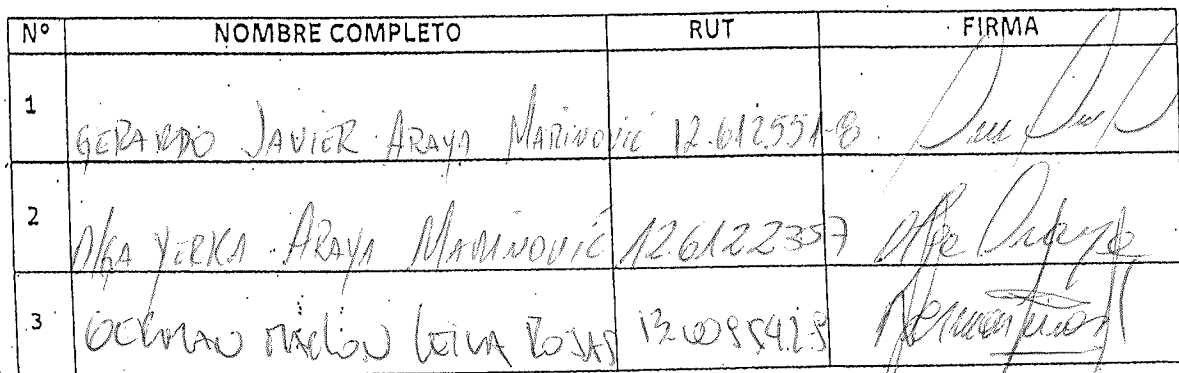 Nº NOMBRE COMPLETO RUT FIRMA
1 GERARDO JAVIER ARAYA MARINOVIC 12.612551-8
2 Olga YERKA ARAYA MARINOVIC 12.6122357 Olga Araya
3 GERMAN LEIVA ROJAS